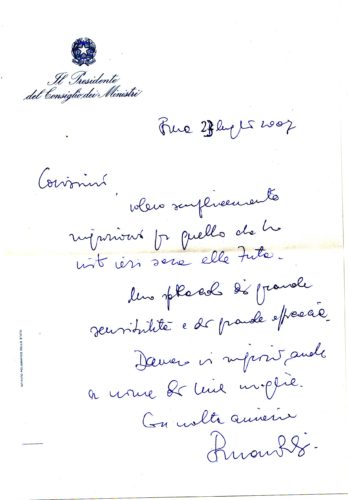 Il Presidente
del Consiglio dei Ministri
Roma 23 luglio 2007
Carissimi,
volevo semplicemente
ringraziarvi per quello che ho
visto ieri sera alla Futa.
Uno spettacolo di grande
sensibilità e di grande efficacia.
Davvero vi ringrazio, anche
a nome di mia moglie.
Con molta amicizia